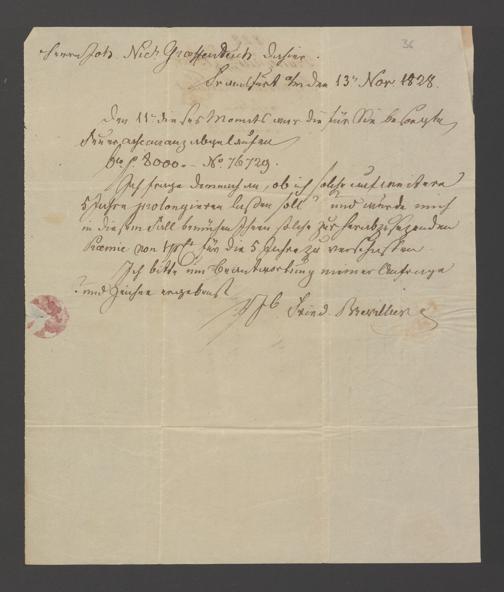 36
Herrn Joh. Nich Graffenbuch dahier.
Frankfurt a/m den 13n Nov. 1828.
Den 11n dieses Monats war die für Sie besorgte
Feuer assecuranz abgelaufen
f. 8000.– No 76729.
Ich frage demnach an, ob ich solche auf weitere
5 Jahre prolongieren lassen soll? und würde mich
in diesem Fall bemühen Ihnen solche zur herabzusetzenden
Praemie von für die 5 Jahre zu verschaffen.
Ich bitte um Beantwortung meiner Anfrage
und zeichne ergebenst
Fried.